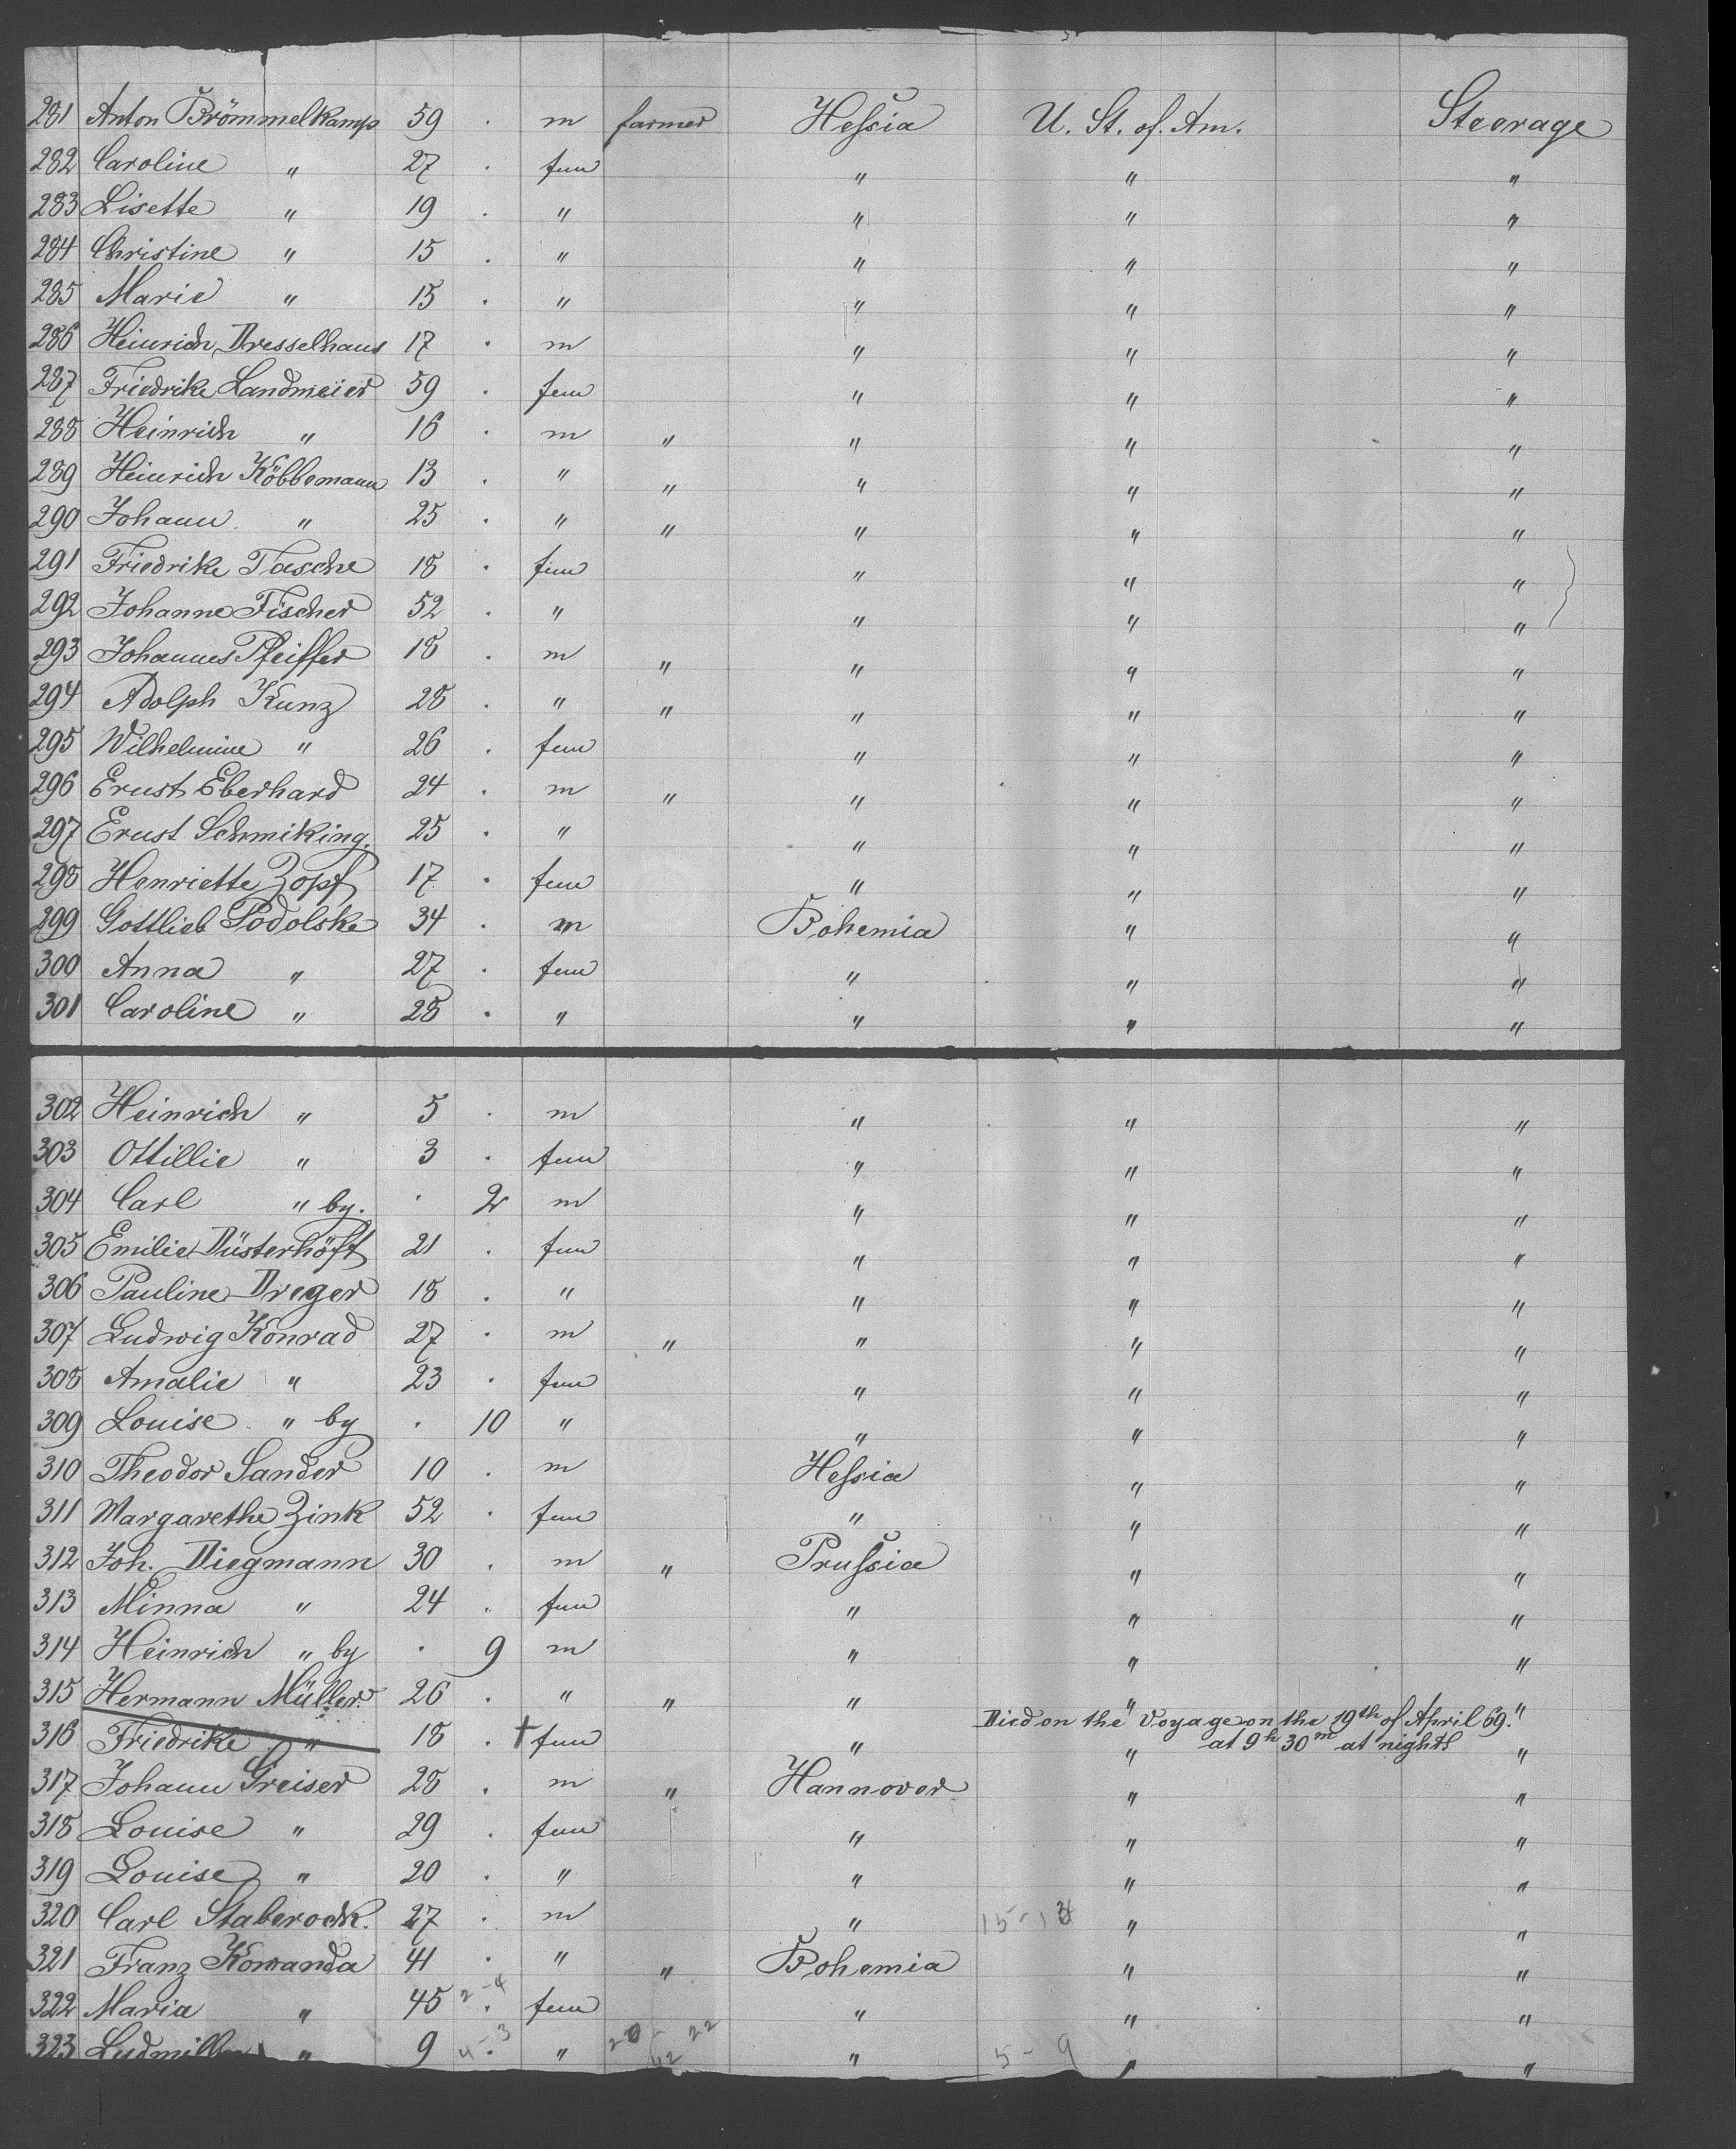 281 Anton Brömmelkamp 59 . m farmer Hessia U. St. of. Am. Steerage
282 Caroline " 27 . fem " " "
283 Lisette " 19 . " " " "
284 Christine " 15 . " " " "
285 Marie " 15 . " " " "
286 Heinrich Dresselhaus 17 . m " " "
287 Friedrike Landmeier 59 . fem " " "
288 Heinrich " 16 . m " " " "
289 Heinrich Köbbemann 13 . " " " " "
290 Johann " 25 . " " " " "
291 Friedrike Tasche 18 . fem " " "
292 Johanne Fischer 52 . " " " "
293 Johannes Pfeiffer 18 . m " " " "
294 Adolph Kunz 28 . " " " " "
295 Wilhelmine " 26 . fem " " "
296 Ernst Eberhard 24 . m " " " "
297 Ernst Schmiking. 25 . " " " "
298 Henriette Zopf 17 . fem " " "
299 Gottlieb Podolske 34 . m Bohemia " "
300 Anna " 27 . fem " " "
301 Caroline " 28 . " " " "
302 Heinrich " 5 . m " " "
303 Ottillie " 3 . fem " " "
304 Carl " by. . 2 m " " "
305 Emilie Düsterhöft 21 . fem " " "
306 Pauline Dreger 18 . " " " "
307 Ludwig Konrad 27 . m " " " "
308 Amalie " 23 . fem " " "
309 Louise " by . 10 " " " "
310 Theodor Sander 10 . m Hessia " "
311 Margarethe Zink 52 . fem " " "
312 Joh. Diegmann 30 . m " Prussia " "
313 Minna " 24 . fem " " "
314 Heinrich " by . 9 m " " "
315 Hermann Müller 26 . " " " " "
Died on the Voyage on the 19th of April 69.
316 Friedrike " 18 . + fem " " at 9h 30m at night "
317 Johann Greiser 28 . m " Hannover " "
318 Louise " 29 . fem " " "
319 Louise " 20 . " " " "
320 Carl Staberock. 27 . m " "  "
321 Franz Kowanda 41 . " " Bohemia " "
322 Maria " 45 2-4 . fem " " "
323 Ludmilla " 9 4-3 . " 20 - 22 42 " 5-9 " "